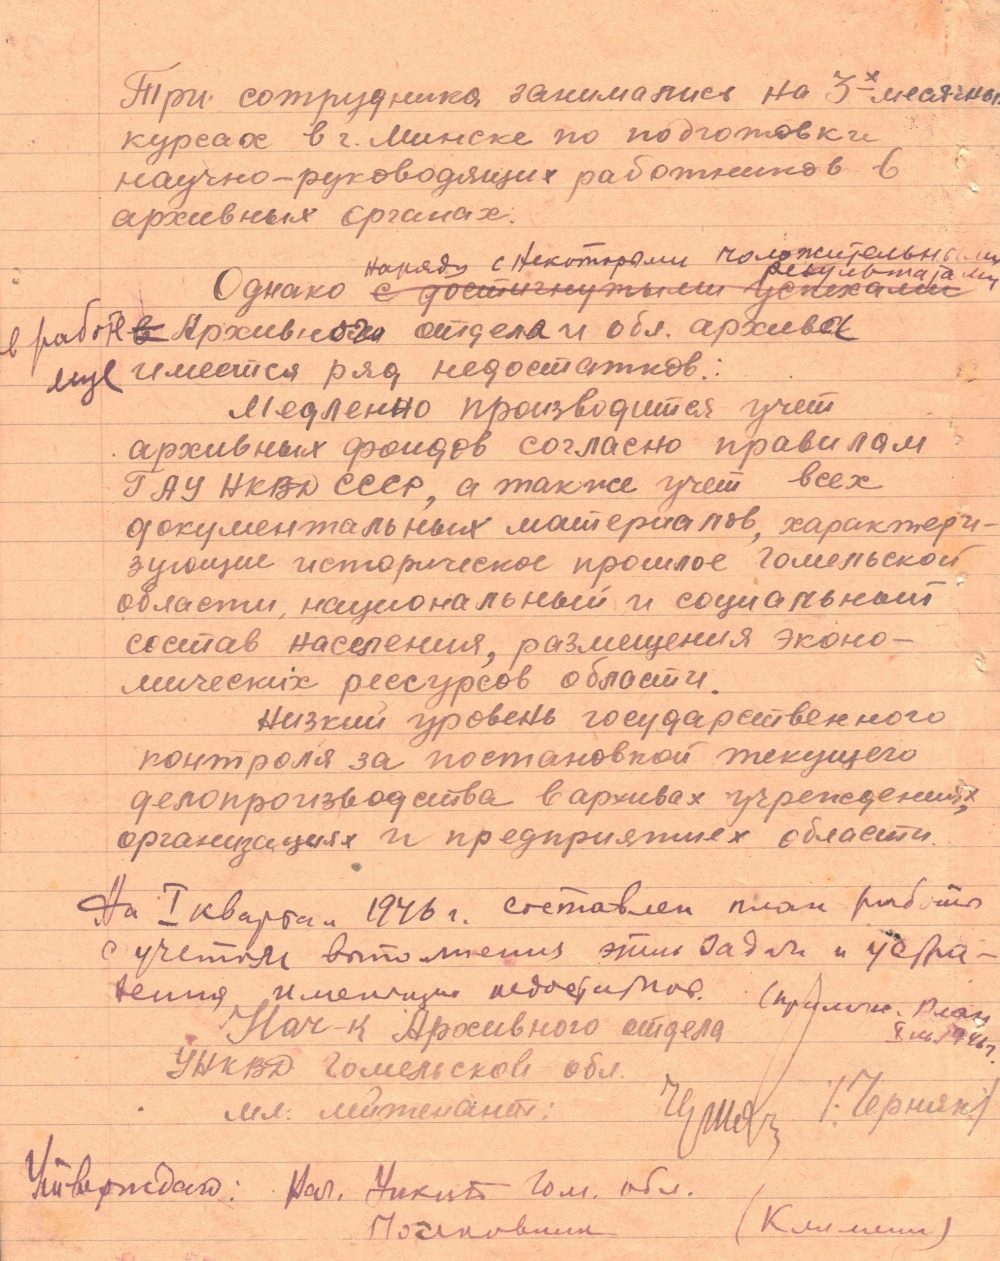 Три сотрудника занимались на 3х месячных
курсах в г. Минске по подготовки
научно-руководящих работников в
архивных органах.
наряду с некоторыми положительными
результатами
Однако с достигнутыми успехами
в работе Архивного отдела и обл. архива
еще имеется ряд недостатков:
Медленно производится учет
архивных фондов согласно правилам
ГАУ НКВД СССР, а также учет всех
документальных материалов, характери-
зующие историческое прошлое Гомельской
области, национальный и социальный
состав населения, размещения эконо-
мических рессурсов области.
Низкий уровень государственного
контроля за постановкой текущего
делопроизводства в архивах учреждениях,
организациях и предприятиях области.
На I квартал 1946 г. составлен план работы
с учетом выполнения этих задач и устра-
нения имеющихся недостатков.
(прилож. план
1946 г.
Нач-к Архивного отдела
УНКВД Гомельской обл.
мл. лейтенант:
/Черняк/
Утверждаю: Нач. Гом. обл.
Полковник (Климин)